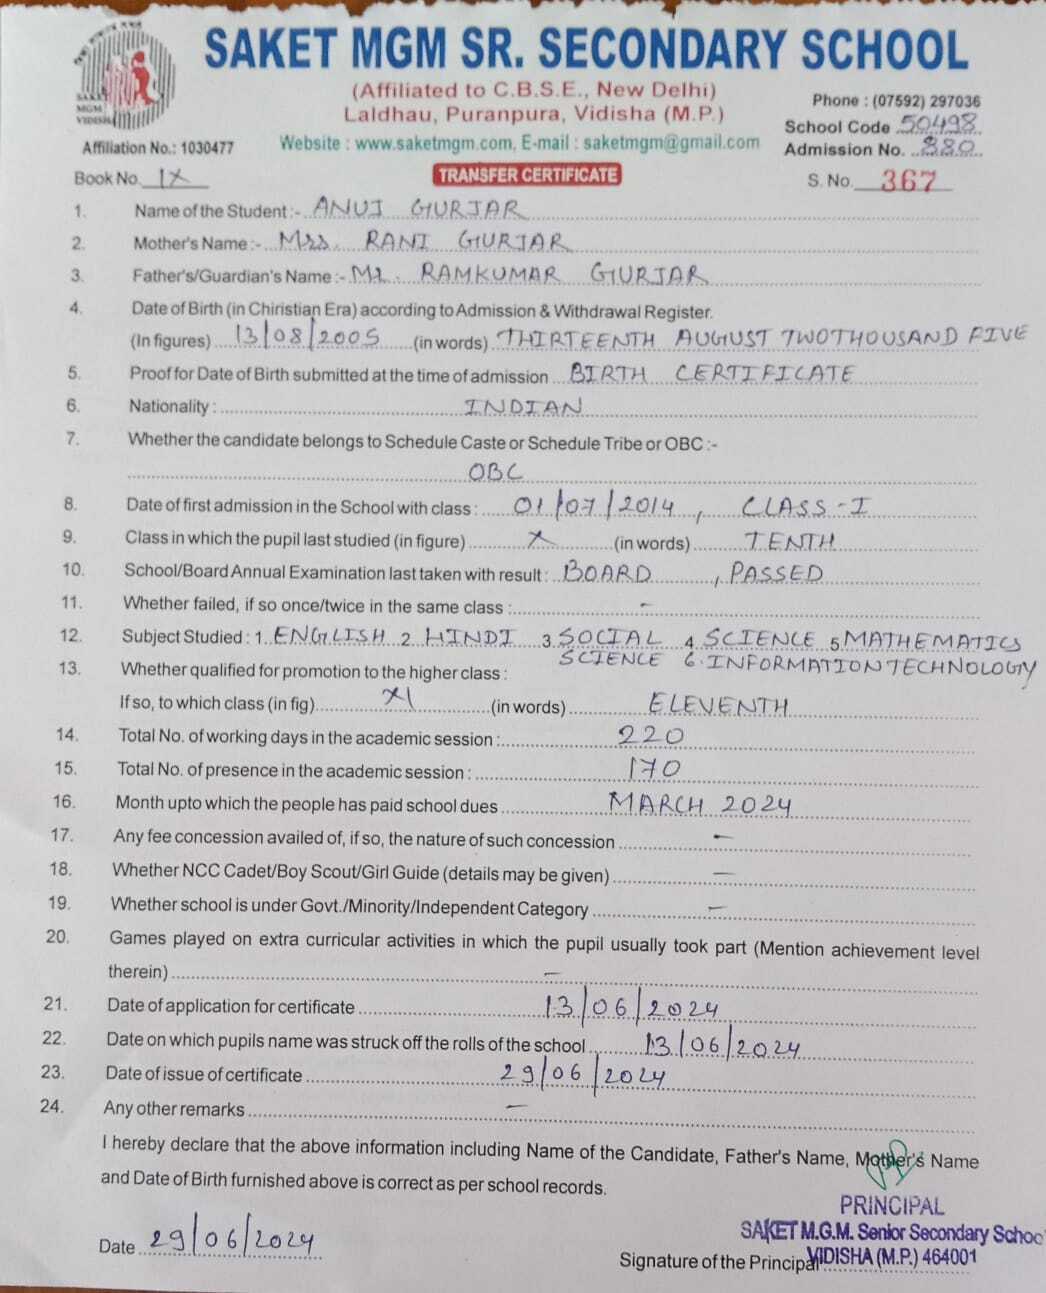 SAKET MGM SR. SECONDARY SCHOOL
(Affiliated to C.B.S.E., New Delhi)
Laldhau, Puranpura, Vidisha (M.P.)
SAKET
MGM
VIDISHA
Phone : (07592) 297036
School Code 50498
Affiliation No.: 1030477
Website : www.saketmgm.com, E-mail : saketmgm@gmail.com
Admission No. 880
Book No. IX
TRANSFER CERTIFICATE
S. No. 367
1. Name of the Student :- ANUJ GURJAR
2. Mother's Name :- Mrs. RANI GURJAR
3. Father's/Guardian's Name :- Mr. RAMKUMAR GURJAR
4. Date of Birth (in Chiristian Era) according to Admission & Withdrawal Register.
(In figures) 13/08/2005 (in words) THIRTEENTH AUGUST TWOTHOUSAND FIVE
5. Proof for Date of Birth submitted at the time of admission BIRTH CERTIFICATE
6. Nationality : INDIAN
7. Whether the candidate belongs to Schedule Caste or Schedule Tribe or OBC :-
OBC
8. Date of first admission in the School with class : 01/07/2014, CLASS-I
9. Class in which the pupil last studied (in figure) X (in words) TENTH
10. School/Board Annual Examination last taken with result : BOARD, PASSED
11. Whether failed, if so once/twice in the same class : -
12. Subject Studied : 1. ENGLISH 2. HINDI 3. SOCIAL 4. SCIENCE 5. MATHEMATICS
SCIENCE 6. INFORMATION TECHNOLOGY
13. Whether qualified for promotion to the higher class :
If so, to which class (in fig) XI (in words) ELEVENTH
14. Total No. of working days in the academic session : 220
15. Total No. of presence in the academic session : 170
16. Month upto which the people has paid school dues MARCH 2024
17. Any fee concession availed of, if so, the nature of such concession -
18. Whether NCC Cadet/Boy Scout/Girl Guide (details may be given) -
19. Whether school is under Govt./Minority/Independent Category -
20. Games played on extra curricular activities in which the pupil usually took part (Mention achievement level
therein) -
21. Date of application for certificate 13/06/2024
22. Date on which pupils name was struck off the rolls of the school 13/06/2024
23. Date of issue of certificate 29/06/2024
24. Any other remarks -
I hereby declare that the above information including Name of the Candidate, Father's Name, Mother's Name
and Date of Birth furnished above is correct as per school records.
PRINCIPAL
SAKET M.G.M. Senior Secondary School
VIDISHA (M.P.) 464001
Date 29/06/2024
Signature of the Principal